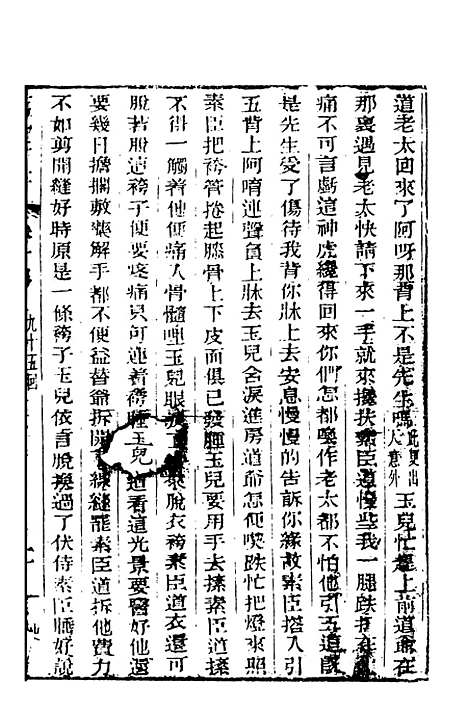 道老太回來了阿呀那背上不是先生嗎此更出大意外玉兒忙趕上前道爺在
那裏遇見老太快請下來一手就來攙扶素臣道慢些我一腿跌折在
痛不可言虧這神虎纔得回來你們怎都喚作老太都不怕他引五道既
是先生受了傷待我背你牀上去安息慢慢的告訴你緣故素臣搭入引
五背上阿唷連聲負上牀去玉兒含淚進房道爺怎便喫跌忙把燈來照
素臣把袴管捲起膝骨上下皮面俱已發腫玉兒要用手去揉素臣道揉
不得一觸着他便痛入骨髓哩玉兒眼 來脫衣袴素臣道衣還可
脫若脫這袴子便要疼痛只可連着袴睡玉兒道看這光景要醫好他還
要幾日擔擱敷藥解手都不便益替爺拆開 縫罷素臣道拆他費力
不如剪開縫好時原是一條袴子玉兒依言脫換過了伏侍素臣睡好說
九十五回